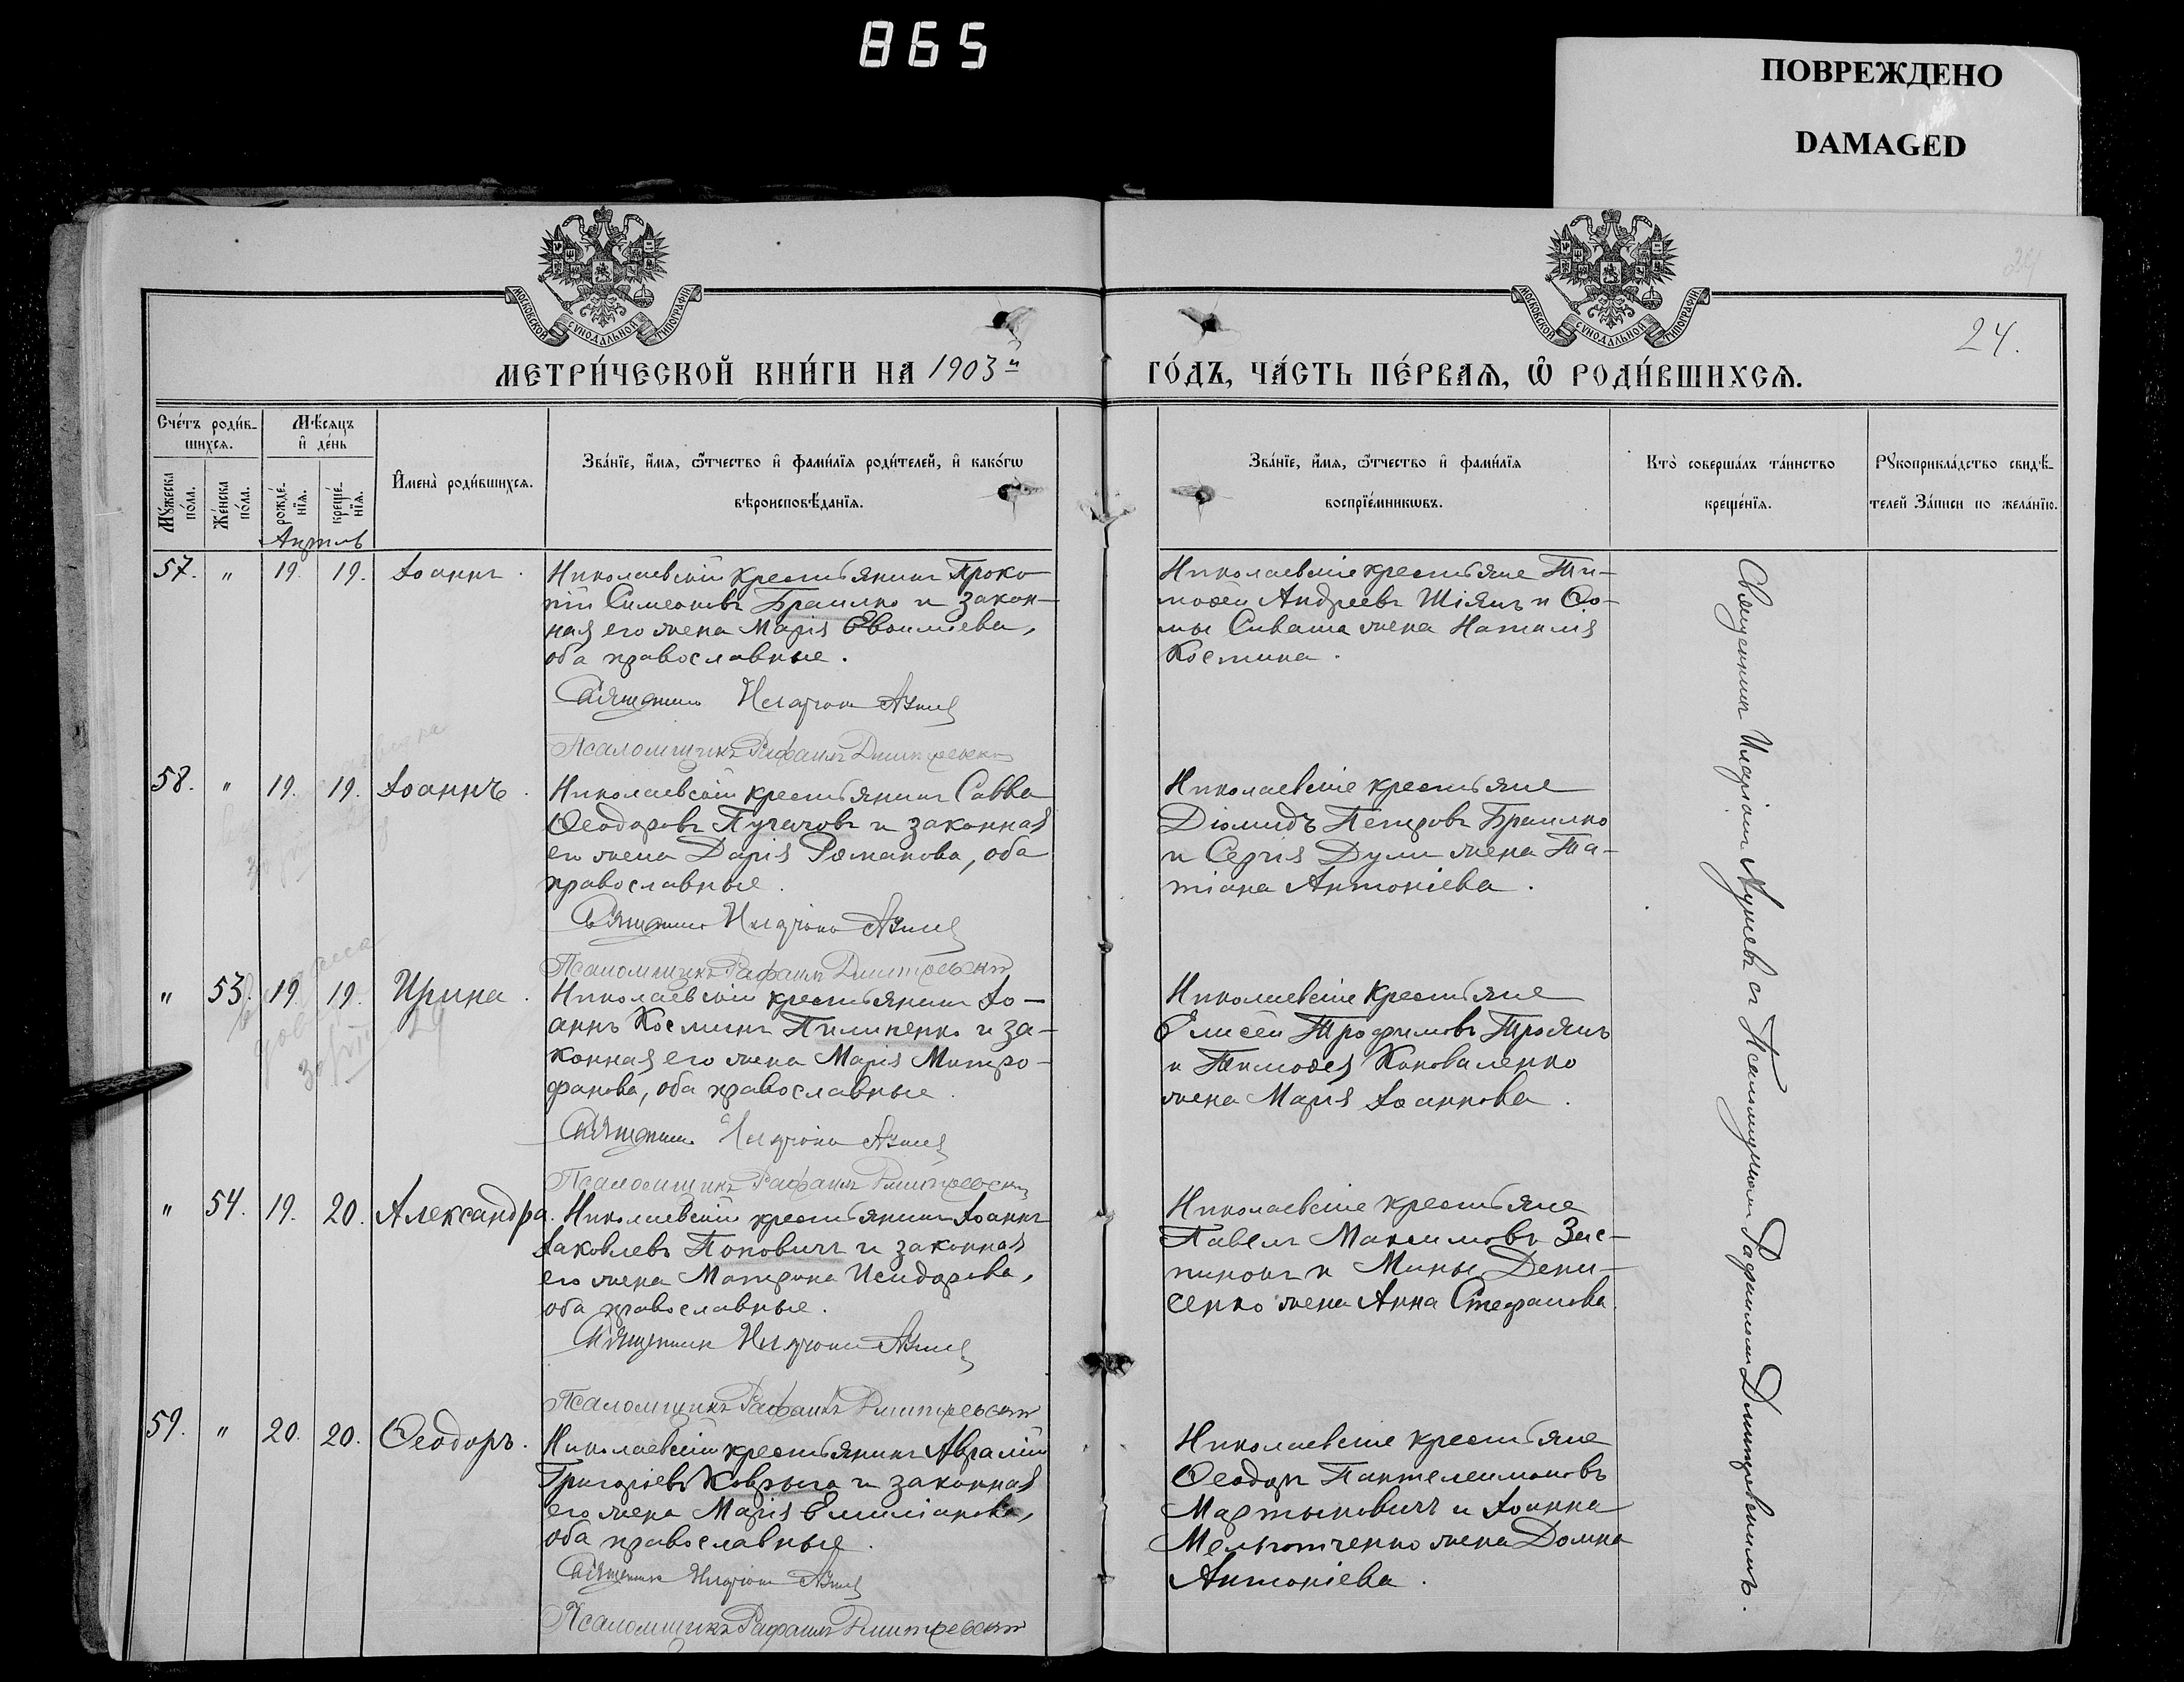 865
ПОВРЕЖДЕНО
DAMAGED
МОСКОВСКОЙ СУНОДАЛЬНОЙ ТИПОГРАФІИ
МОСКОВСКОЙ СУНОДАЛЬНОЙ ТИПОГРАФІИ
24.
МЕТРИ́ЧЕСКОЙ КНИ́ГИ НА 1903й
ГО́ДЪ, ЧА́СТЬ ПЕ́РВАѦ, Ѡ РОДИ́ВШИХСѦ.
Сче́тъ роди́в-
шихсѧ.
Мѣ́сѧцъ
и҆ де́нь
Мꙋ́жеска по́ла.
Же́нска по́ла.
рожде́-нїѧ.
креще́-нїѧ.
И҆мена̀ роди́вшихсѧ.
Зва́нїе, и҆́мѧ, ѻ҆́тчество и҆ фами́лїѧ роди́телей, и҆ како́гѡ
вѣроисповѣ́данїѧ.
Зва́нїе, и҆́мѧ, ѻ҆́тчество и҆ фами́лїѧ
воспрїе́мникѡвъ.
Кто̀ соверша́лъ та́инство
креще́нїѧ.
Рꙋкоприкла́дство свидѣ́-
телей За́писи по жела́нїю.
Апрѣль
57. " 19. 19. Іоаннъ.
Николаевскій крестьянинъ Проко-
пій Симеоновъ Браилко и закон-
ная его жена Марія Евѳиміева,
оба православные.
Священникъ Иларіонъ
Псаломщикъ Рафаилъ Дмитревскій
Николаевскіе крестьяне Ти-
моѳей Андреевъ Шіянъ и Ѳо-
мы Сиваша жена Наталія
Костина.
58. " 19. 19. Іоаннъ.
Николаевскій крестьянинъ Савва
Ѳеодоровъ Пугачовъ и законная
его жена Дарія Романова, оба
православные.
Священникъ Иларіонъ
Псаломщикъ Рафаилъ Дмитревскій
Николаевскіе крестьяне
Діомидъ Петровъ Браилко
и Сергія Дули жена Та-
тіана Антоніева.
" 53. 19. 19. Ирина.
Николаевскій крестьянинъ Іо-
аннъ Косминъ Пилипенко и за-
конная его жена Марія Митро-
фанова, оба православные.
Священникъ Иларіонъ
Псаломщикъ Рафаилъ Дмитревскій
Николаевскіе крестьяне
Елисей Трофимовъ Троянъ
и Тимоѳея Коноваленко
жена Марія Іоаннова.
" 54. 19. 20. Александра.
Николаевскій крестьянинъ Іоаннъ
Іаковлевъ Поповичъ и законная
его жена Матрона Исидорова,
оба православные.
Священникъ Иларіонъ
Псаломщикъ Рафаилъ Дмитревскій
Николаевскіе крестьяне
Павелъ Максимовъ
и Мины Дени-
сенко жена Анна Стефанова.
59. " 20. 20. Ѳеодоръ.
Николаевскій крестьянинъ Аврамій
Григоріевъ Коврыга и законная
его жена Марія Емиліанова,
оба православные.
Священникъ Иларіонъ
Псаломщикъ Рафаилъ Дмитревскій
Николаевскіе крестьяне
Ѳеодоръ Пантелеимоновъ
Мартыновичъ и Іоанна
жена Домна
Антоніева.
Священникъ Иларіонъ съ Псаломщикомъ Рафаиломъ Дмитревскимъ.